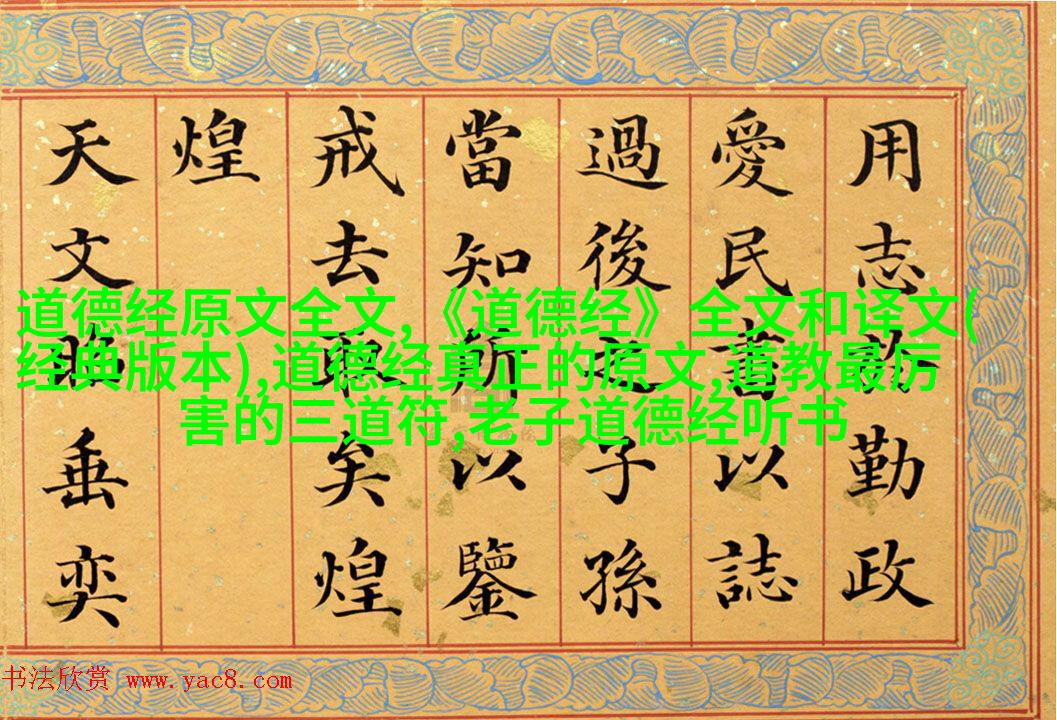 用志於勤政
愛民書以誌
過後之子孫
當知斯以鑒
戒去取矣煌
煌
天文昭垂奕
道德经原文全文,《道德经》全文和译文(
经典版本),道德经真正的原文,道教最厉
害的三道符,老子道德经听书
书法欣赏 www.yac8.com